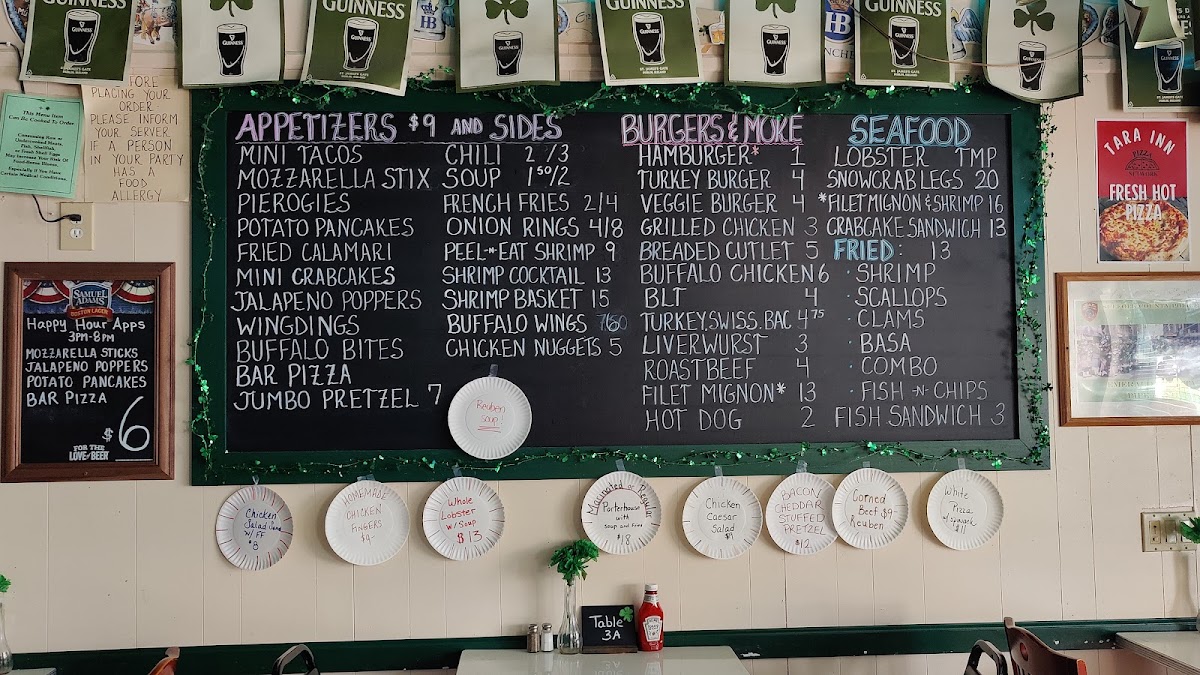 GUINNESS
GUINNESS
GUINNESS
GUINNESS
GUINNESS
GUINNESS
GUINNESS
GUINNESS
HB
ST. JAMES'S GATE
DUBLIN, IRELAND
This Menu Item
Can Be Cooked To Order
Consuming Raw or
Undercooked Meats,
Fish, Shellfish,
or Fresh Shell Eggs
May Increase Your Risk Of
Food-Borne Illness,
Especially if You Have
Certain Medical Conditions
PLACING YOUR
ORDER
PLEASE INFORM
YOUR SERVER
IF A PERSON
IN YOUR PARTY
HAS A
FOOD
ALLERGY
SAMUEL
ADAMS
BOSTON LAGER
Happy Hour Apps
3PM-8PM
MOZZARELLA STICKS
JALAPENO POPPERS
POTATO PANCAKES
BAR PIZZA
$6
FOR THE
LOVE of BEER
APPETIZERS $9 AND SIDES
MINI TACOS
MOZZARELLA STIX
PIEROGIES
POTATO PANCAKES
FRIED CALAMARI
MINI CRABCAKES
JALAPENO POPPERS
WINGDINGS
BUFFALO BITES
BAR PIZZA
JUMBO PRETZEL 7
CHILI 2/3
SOUP 1⁵⁰/2
FRENCH FRIES 2/4
ONION RINGS 4/8
PEEL-N-EAT SHRIMP 9
SHRIMP COCKTAIL 13
SHRIMP BASKET 15
BUFFALO WINGS
CHICKEN NUGGETS 5
BURGERS & MORE
HAMBURGER* 1
TURKEY BURGER 4
VEGGIE BURGER 4
GRILLED CHICKEN 3
BREADED CUTLET 5
BUFFALO CHICKEN 6
BLT 4
TURKEY, SWISS, BAC 4⁷⁵
LIVERWURST 3
ROAST BEEF 4
FILET MIGNON* 13
HOT DOG 2
SEAFOOD
LOBSTER TMP
SNOWCRAB LEGS 20
*FILET MIGNON & SHRIMP 16
CRABCAKE SANDWICH 13
FRIED: 13
· SHRIMP
· SCALLOPS
· CLAMS
· BASA
· COMBO
· FISH-N-CHIPS
FISH SANDWICH 3
TARA INN
PIZZA
FRESH HOT
PIZZA
Reuben
soup
Chicken
Salad
w/ FF
$8
HOMEMADE
CHICKEN
FINGERS
$9
Whole
Lobster
w/ Soup
$13
Marinated or Regular
Porterhouse
with
soup and fries
$18
Chicken
Caesar
Salad
$9
BACON
CHEDDAR
STUFFED
PRETZEL
$12
Corned
Beef $9
Reuben
White
Pizza
w/ spinach
$11
Table
3A
HEINZ